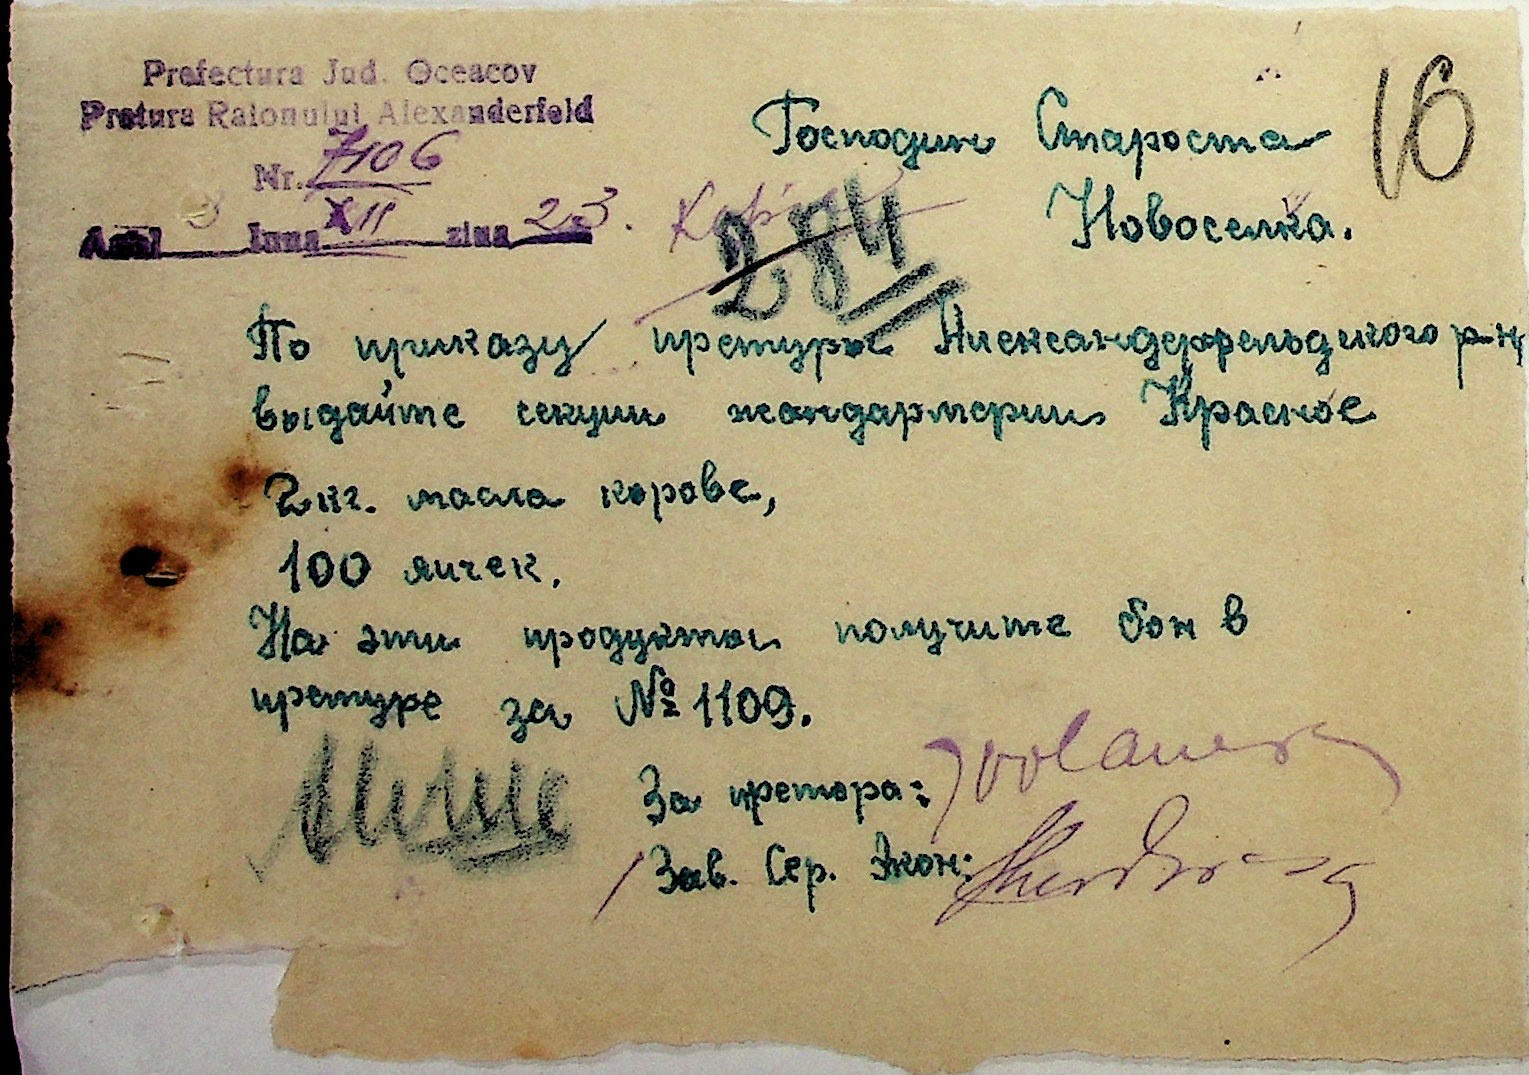 Prefectura Jud. Oceacov
Pretura Raionului Alexanderfeld
Nr. 7106
Anul 3 luna XII ziua 23.
16
Господин Староста
Новоселка.
284
По приказу претуры Александерфельдского р-на
выдайте секции жандармерии Красное
2 кг. масла корове,
100 яичек.
На эти продукты получите бон в
претуре за № 1109.
За претора:
Зав. Сер. Экон: